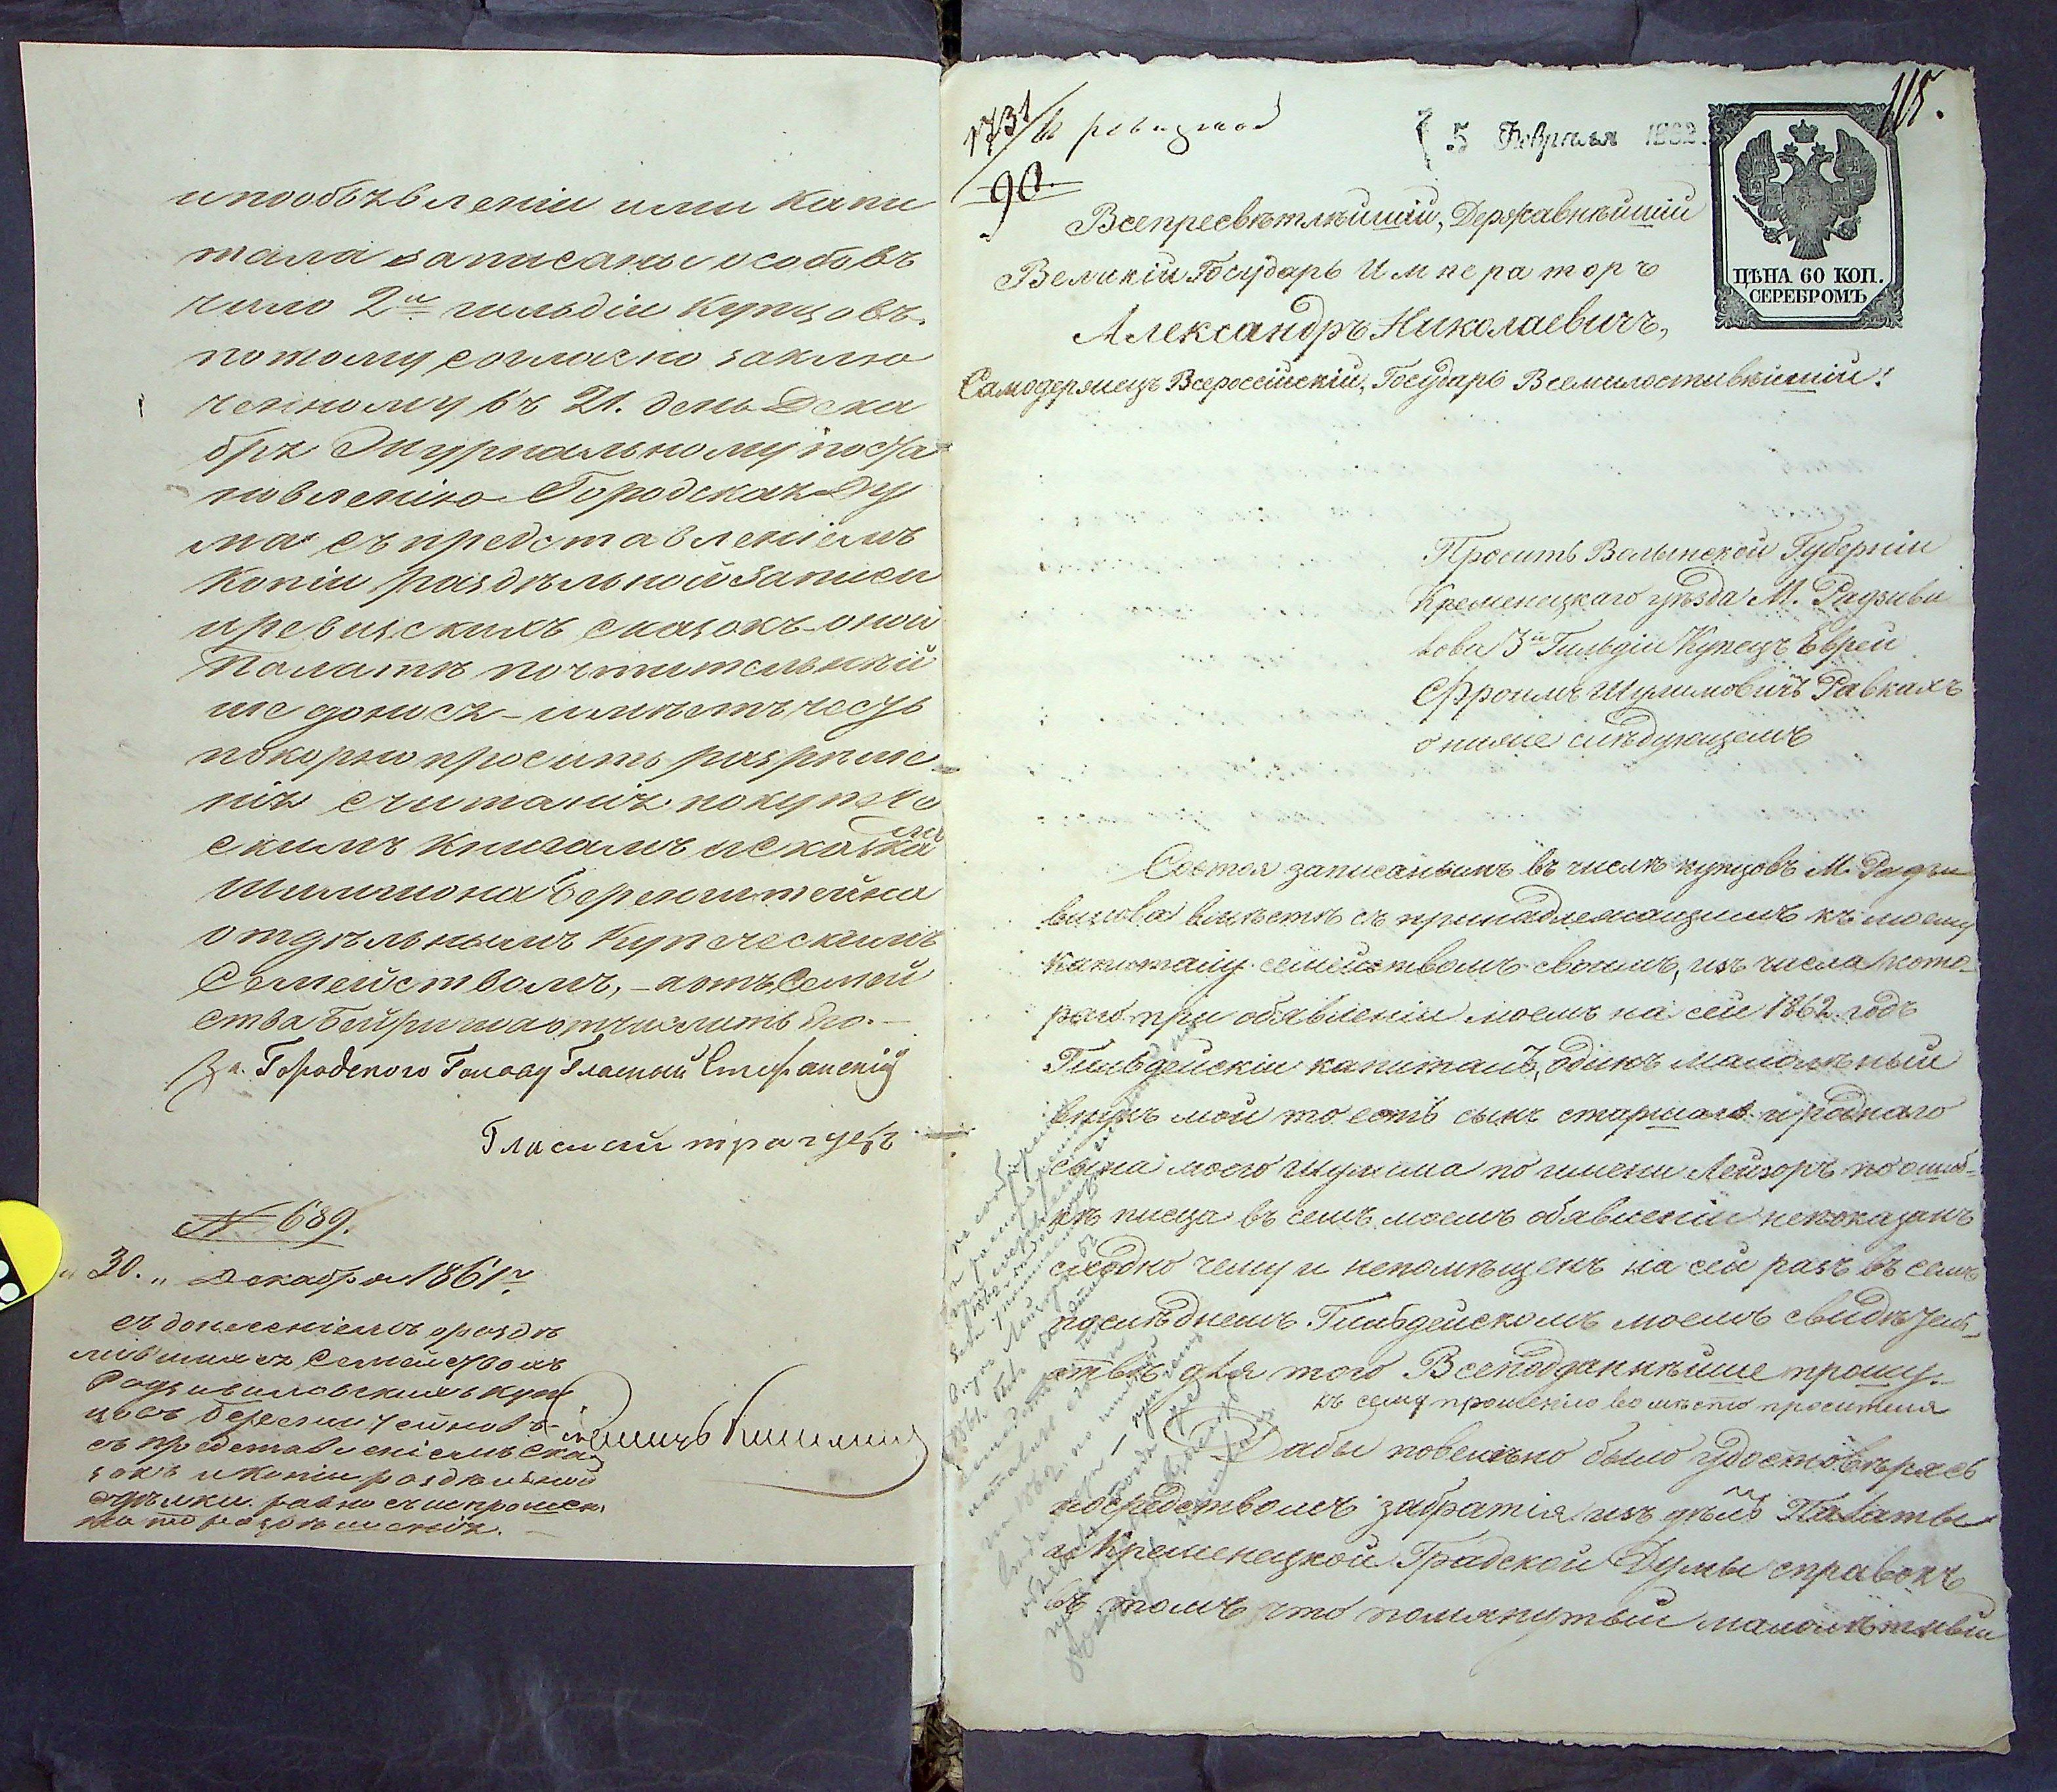 и пообъявленіи ими капи
тала записаны особовъ
число 2й гильдіи купцовъ.
потому согласно заклю
ченному въ 21. день Дека
бря Журнальному поста
новленію Городская Ду
ма съ представленіемъ
копіи раздѣльной записи
и ревизскихъ сказокъ оной
Палатѣ почтительнѣй
ше донося – имѣетъ честь
покорно просить разрѣше
нія считанія по купече
скимъ книгамъ и сказкамъ
Шиммона Беренштейна
отдѣльнымъ Купеческимъ
Семействомъ, – а отъ Семей
ства отчислить его. –
За Городского Голову Гласный Стефанскій
Гласный
№ 689.
„ 30. „ Декабря 1861 г.
съ донесеніемъ о раздѣ
лившихся Семействахъ
Радзивиловскихъ куп
цовъ Беренштейновъ
съ представленіемъ ска
зокъ и копіи раздѣльной
сдѣлки равно съ испрошен.
на то разрѣшенія.
1731/90
К ревизской
5 Февраля 1862.
115.
ЦѢНА 60 КОП.
СЕРЕБРОМЪ
Всепресвѣтлѣйшій, Державнѣйшій
Великій Государь Императоръ
Александръ Николаевичъ,
Самодержецъ Всероссійскій, Государь Всемилостивѣйшій!
Проситъ Волынской Губерніи
Кременецкаго уѣзда М. Радзиви
лова 3й Гильдіи Купецъ Еврей
Фроимъ Шулимовичъ Равкахъ
о ниже слѣдующемъ
Состоя записаннымъ въ числѣ купцовъ М. Радзи
вилова вмѣстѣ съ принадлежащимъ къ моему
капиталу семействомъ своимъ, изъ числа кото-
раго при обявленіи моемъ на сей 1862 годъ
Гильдейскій капиталъ, одинъ малолѣтный
внукъ мой то есть сынъ старшаго и роднаго
сына моего Шулима по имени Лейзоръ по ошиб-
кѣ писца въ семъ моемъ обявленіи непоказанъ
сходно чему и непомѣщенъ на сей разъ въ семъ
послѣднемъ Гильдейскомъ моемъ свидѣтель-
ствѣ для того Всеподданнѣйше прошу.
къ сему прошенію во мѣсто просителя
Дабы повелѣно было удостовѣрясь
посредствомъ забратія изъ дѣлъ Палаты
и Кременецкой Градской Думы справокъ
въ томъ что помянутый малолѣтный